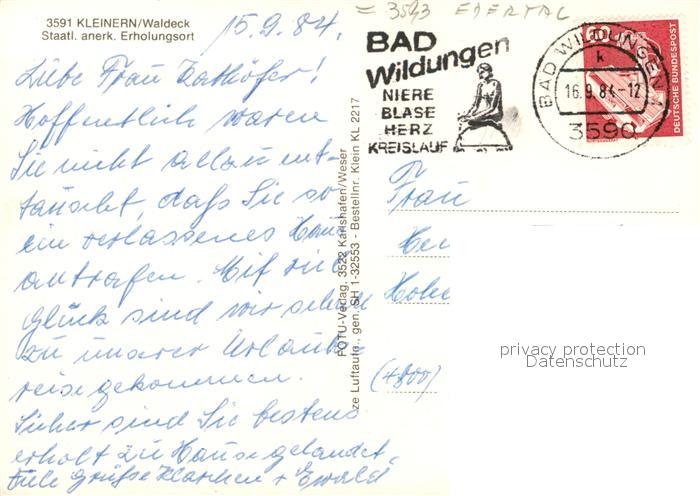 3591 KLEINERN/Waldeck
Staatl. anerk. Erholungsort
= 3593 EDERTAL
15.9.84.
Liebe Frau !
Hoffentlich waren
Sie nicht allzu ent-
täuscht, daß Sie so
ein verlassenes Haus
antrafen. Mit viel
Glück sind wir schon
zu unserer Urlaubs-
reise gekommen.
Sicher sind Sie bestens
erholt zu Hause gelandet.
Viele Grüße + Ewald
FOTU-Verlag, 3522 Karlshafen/Weser
ze Luftaufn., gen. SH 1-32553 - Bestellnr. Klein KL 2217
BAD
Wildungen
NIERE
BLASE
HERZ
KREISLAUF
BAD WILDUNGEN 1
k
16.9.84-12
3590
60
DEUTSCHE BUNDESPOST
Frau
Her
Hohe
(4800)
privacy protection
Datenschutz